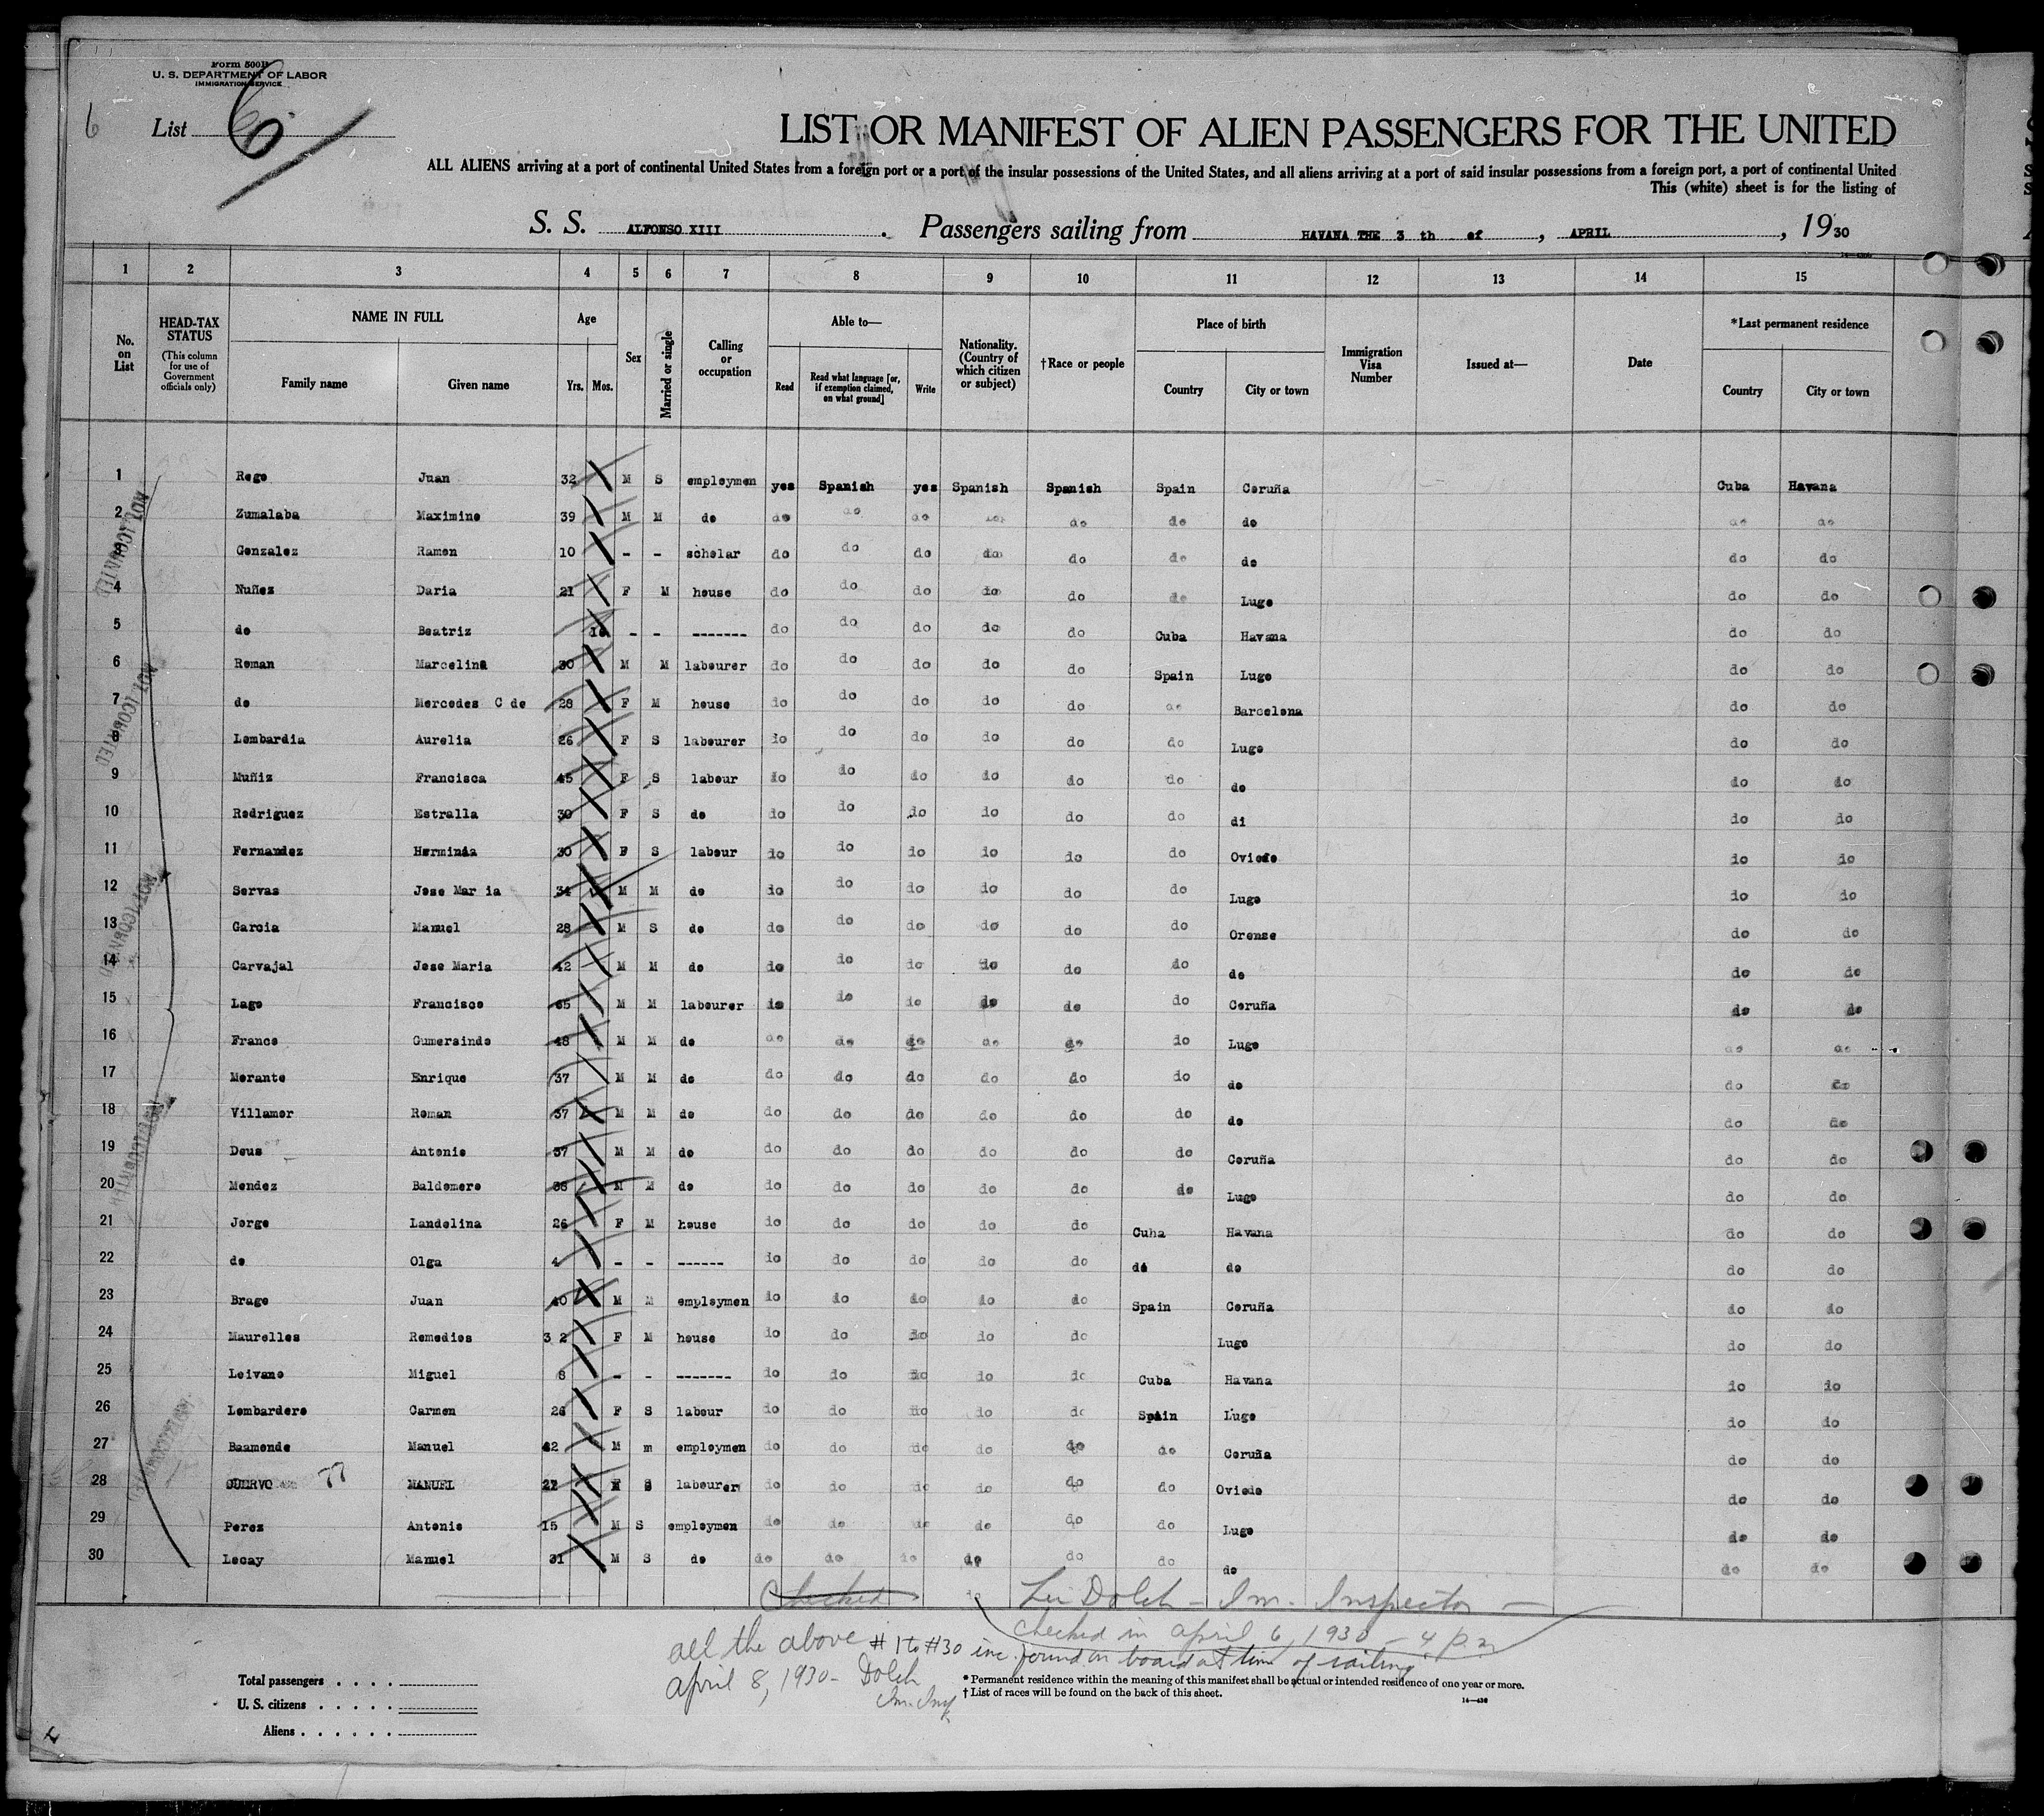 Form 500B
U. S. DEPARTMENT OF LABOR
IMMIGRATION SERVICE
6 List 6
LIST OR MANIFEST OF ALIEN PASSENGERS FOR THE UNITED
ALL ALIENS arriving at a port of continental United States from a foreign port or a port of the insular possessions of the United States, and all aliens arriving at a port of said insular possessions from a foreign port, a port of continental United
This (white) sheet is for the listing of
S. S. ALFONSO XIII. Passengers sailing from HAVANA THE 3 th of, APRIL, 1930
1 2 3 4 5 6 7 8 9 10 11 12 13 14 15
No. on List
HEAD-TAX STATUS (This column for use of Government officials only)
NAME IN FULL Family name Given name
Age Yrs. Mos.
Sex
Married or single
Calling or occupation
Able to— Read Read what language [or, if exemption claimed, on what ground] Write
Nationality. (Country of which citizen or subject)
†Race or people
Place of birth Country City or town
Immigration Visa Number
Issued at—
Date
*Last permanent residence Country City or town
1 Rego Juan 32 M S employmen yes Spanish yes Spanish Spanish Spain Coruña Cuba Havana
2 Zumalaba Maximino 39 M M do do do do do do do do do do
3 Gonzalez Ramon 10 - - scholar do do do do do do do do do
4 Nuñez Daria 21 F M house do do do do do do Lugo do do
5 do Beatriz - - ------- do do do do do Cuba Havana do do
6 Roman Marcelina 30 M M labourer do do do do do Spain Lugo do do
7 do Mercedes C de 28 F M house do do do do do do Barcelona do do
8 Lombardia Aurelia 26 F S labourer do do do do do do Lugo do do
9 Muñiz Francisca 45 F S labour do do do do do do do do do
10 Rodriguez Estralla 30 F S do do do do do do do di do do
11 Fernandez Herminia 30 F S labour do do do do do do Oviedo do do
12 Servas Jose Mar ia 34 M M do do do do do do do Lugo do do
13 Garcia Manuel 28 M S do do do do do do do Orense do do
14 Carvajal Jose Maria 42 M M do do do do do do do do do do
15 Lago Francisco 65 M M labourer do do do do do do Coruña do do
16 Franco Gumersindo 48 M M do do do do do do do Lugo do do
17 Morante Enrique 37 M M do do do do do do do do do do
18 Villamor Roman 37 M M do do do do do do do do do do
19 Deus Antonio 37 M M do do do do do do do Coruña do do
20 Mendez Baldomero 38 M M do do do do do do do Lugo do do
21 Jorge Landolina 26 F M house do do do do do Cuba Havana do do
22 do Olga 4 - - ------ do do do do do do do do do
23 Brage Juan 40 M M employmen do do do do do Spain Coruña do do
24 Maurelles Remedios 3 2 F M house do do do do do Lugo do do
25 Leivano Miguel 8 - - ------- do do do do do Cuba Havana do do
26 Lombardero Carmen 26 F S labour do do do do do Spain Lugo do do
27 Baamonde Manuel 42 M m employmen do do do do do do Coruña do do
28 CUERVO 77 MANUEL 27 M S labourer do do do do do do Oviedo do do
29 Perez Antonio 15 M S employmen do do do do do do Lugo do do
30 Lecay Manuel 31 M S do do do do do do do do do do
Checked Dolch - Im. Inspector -
checked in april 6, 1930 - 4 p.m
all the above #1 to #30 inc. found on board at time of sailing.
april 8, 1930 - Dolch
Im. Insp
Total passengers
U. S. citizens
Aliens
* Permanent residence within the meaning of this manifest shall be actual or intended residence of one year or more.
† List of races will be found on the back of this sheet.
14—436